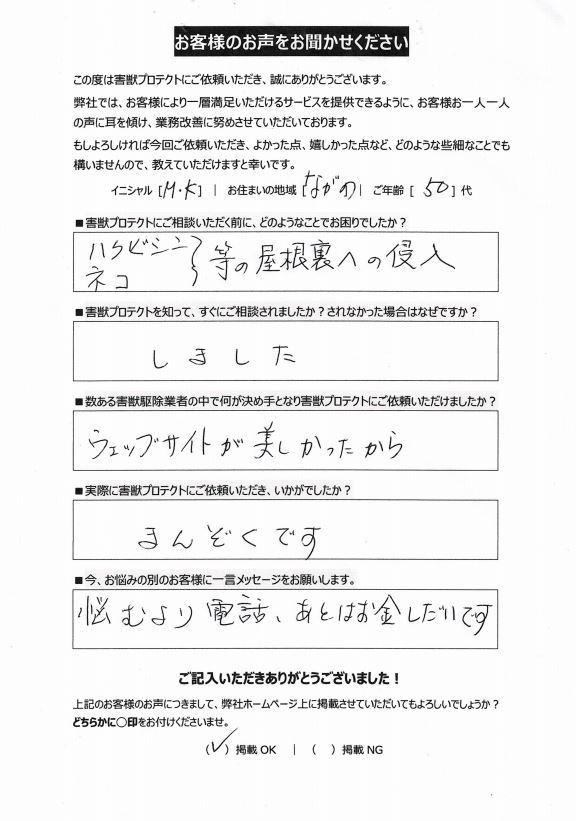 お客様のお声をお聞かせください
この度は害獣プロテクトにご依頼いただき、誠にありがとうございます。
弊社では、お客様により一層満足いただけるサービスを提供できるように、お客様お一人一人
の声に耳を傾け、業務改善に努めさせていただいております。
もしよろしければ今回ご依頼いただき、よかった点、嬉しかった点など、どのような些細なことでも
構いませんので、教えていただけますと幸いです。
イニシャル [M・K] | お住まいの地域 [ながの] | ご年齢 [ 50 ] 代
■害獣プロテクトにご相談いただく前に、どのようなことでお困りでしたか？
ハクビシン
ネコ
} 等の屋根裏への侵入
■害獣プロテクトを知って、すぐにご相談されましたか？されなかった場合はなぜですか？
しました
■数ある害獣駆除業者の中で何が決め手となり害獣プロテクトにご依頼いただけましたか？
ウェッブサイトが美しかったから
■実際に害獣プロテクトにご依頼いただき、いかがでしたか？
まんぞくです
■今、お悩みの別のお客様に一言メッセージをお願いします。
悩むより電話、あとはお金しだいです
ご記入いただきありがとうございました！
上記のお客様のお声につきまして、弊社ホームページ上に掲載させていただいてもよろしいでしょうか？
どちらかに○印をお付けくださいませ。
(✓) 掲載 OK | ( ) 掲載 NG